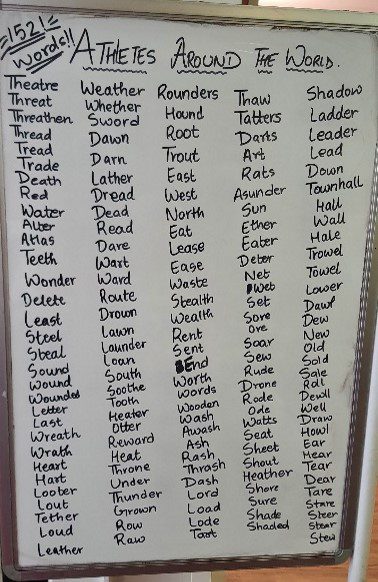 =1521=
Words!!
ATHLETES AROUND THE WORLD.
Theatre
Threat
Threathen
Thread
Tread
Trade
Death
Red
Water
Alter
Atlas
Teeth
Wonder
Delete
Least
Steel
Steal
Sound
Wound
Wounded
Letter
Last
Wreath
Wrath
Heart
Hart
Looter
Lout
Tether
Loud
Leather
Weather
Whether
Sword
Dawn
Darn
Lather
Dread
Dead
Read
Dare
Wart
Ward
Route
Drown
Lawn
Launder
Loan
South
Soothe
Tooth
Heater
Otter
Reward
Heat
Throne
Under
Thunder
Grown
Row
Raw
Rounders
Hound
Root
Trout
East
West
North
Eat
Lease
Ease
Waste
Stealth
Wealth
Rent
Sent
BEnd
Worth
Words
Wooden
Wash
Awash
Ash
Rash
Thrash
Dash
Lord
Load
Lode
Thaw
Tatters
Darts
Art
Rats
Asunder
Sun
Ether
Eater
Deter
Net
Wet
Set
Sore
Ore
Soar
Sew
Rude
Drone
Rode
Ode
Watts
Seat
Sheet
Shout
Heather
Shore
Sure
Shade
Shaded
Shadow
Ladder
Leader
Lead
Down
Townhall
Hall
Wall
Hale
Trowel
Towel
Lower
Dawl
Dew
New
Old
Sold
Sale
Roll
Dewll
Well
Draw
Howl
Ear
Hear
Tear
Dear
Tare
Stare
Steer
Stear
Stew